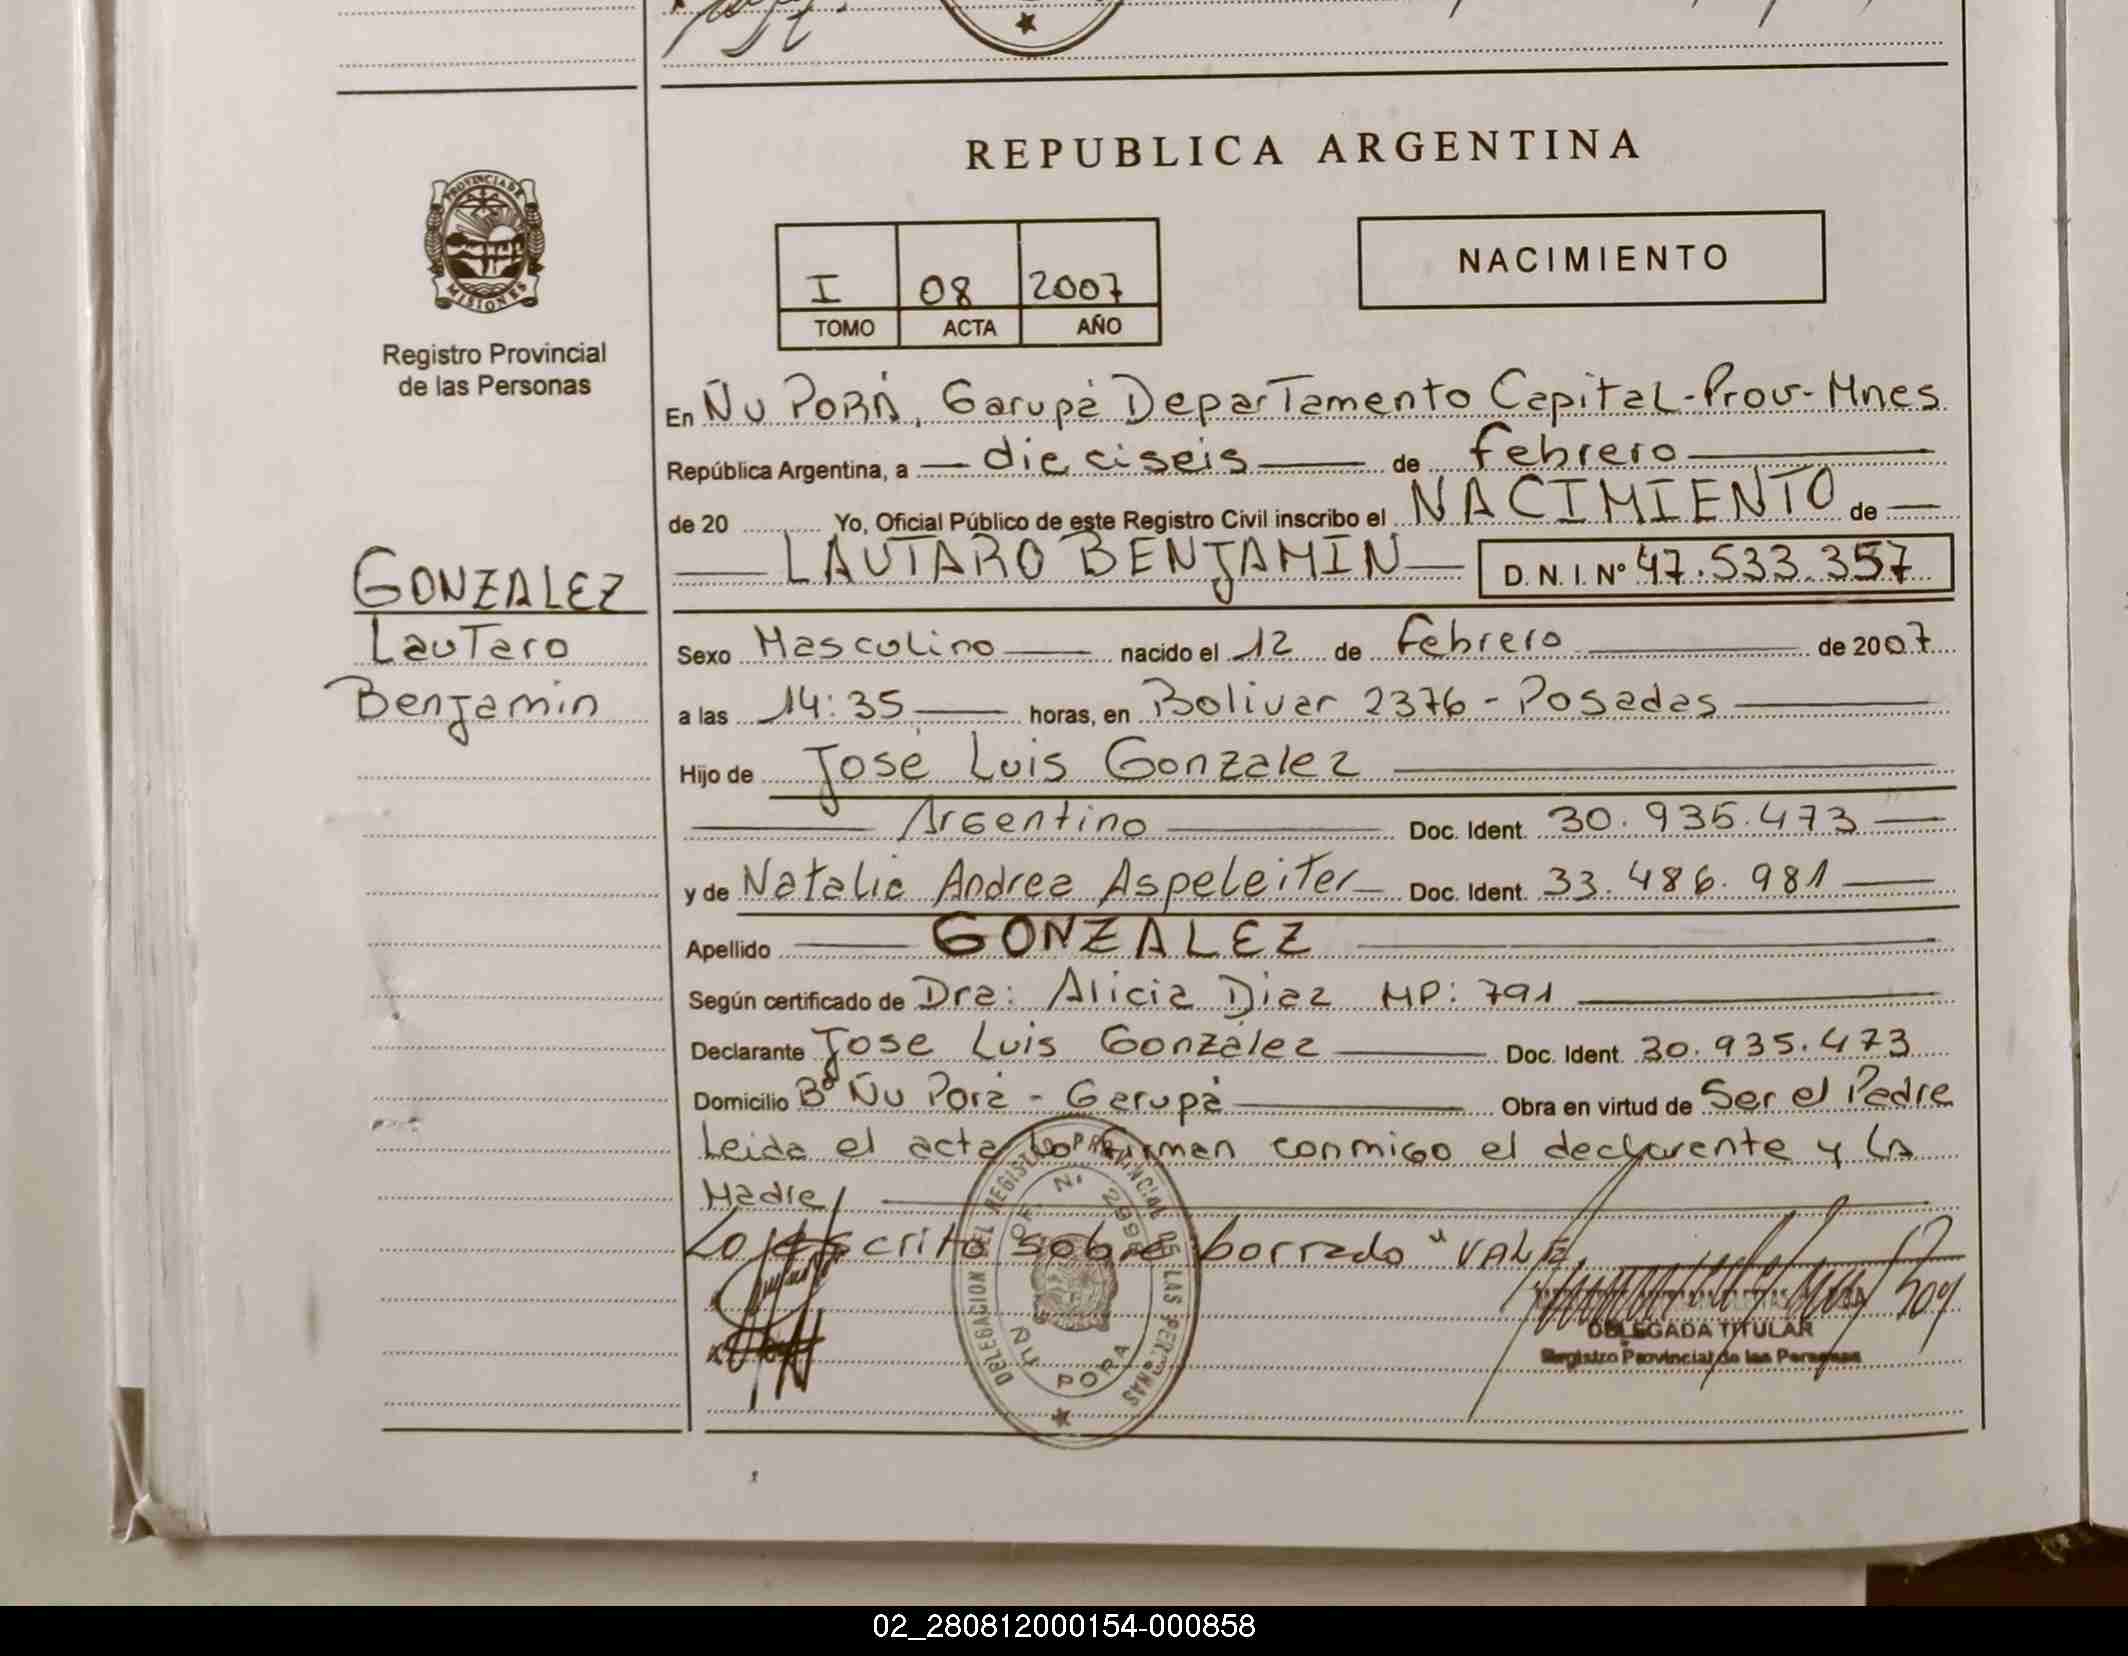 REPUBLICA ARGENTINA
PROVINCIA DE
MISIONES
Registro Provincial
de las Personas
NACIMIENTO
I 08 2007
TOMO ACTA AÑO
En Ñu PORÁ, Garupá Departamento Capital-Prov-Mnes
República Argentina, a — dieciseis — de febrero —
de 20 Yo, Oficial Público de este Registro Civil inscribo el NACIMIENTO de —
— LAUTARO BENJAMIN — D. N. I. Nº 47.533.357
GONZALEZ
Lautaro
Benjamin
Sexo Masculino — nacido el 12 de febrero — de 2007
a las 14:35 — horas, en Bolivar 2376 - Posadas —
Hijo de José Luis Gonzalez —
— Argentino — Doc. Ident. 30.935.473 —
y de Natalia Andrea Aspeleiter — Doc. Ident. 33.486.981 —
Apellido — GONZALEZ —
Según certificado de Dra: Alicia Diaz MP: 791 —
Declarante Jose Luis González — Doc. Ident. 30.935.473
Domicilio Bº Ñu Porá - Garupá — Obra en virtud de Ser el Padre
Leida el acta lo firman conmigo el declarante y LA
Madre —
Lo escrito sobre borrado "VALE
DELEGACION DEL REGISTRO PROVINCIAL DE LAS PERSONAS
OF. Nº
ÑU PORA
DELEGADA TITULAR
Registro Provincial de las Personas
02_280812000154-000858